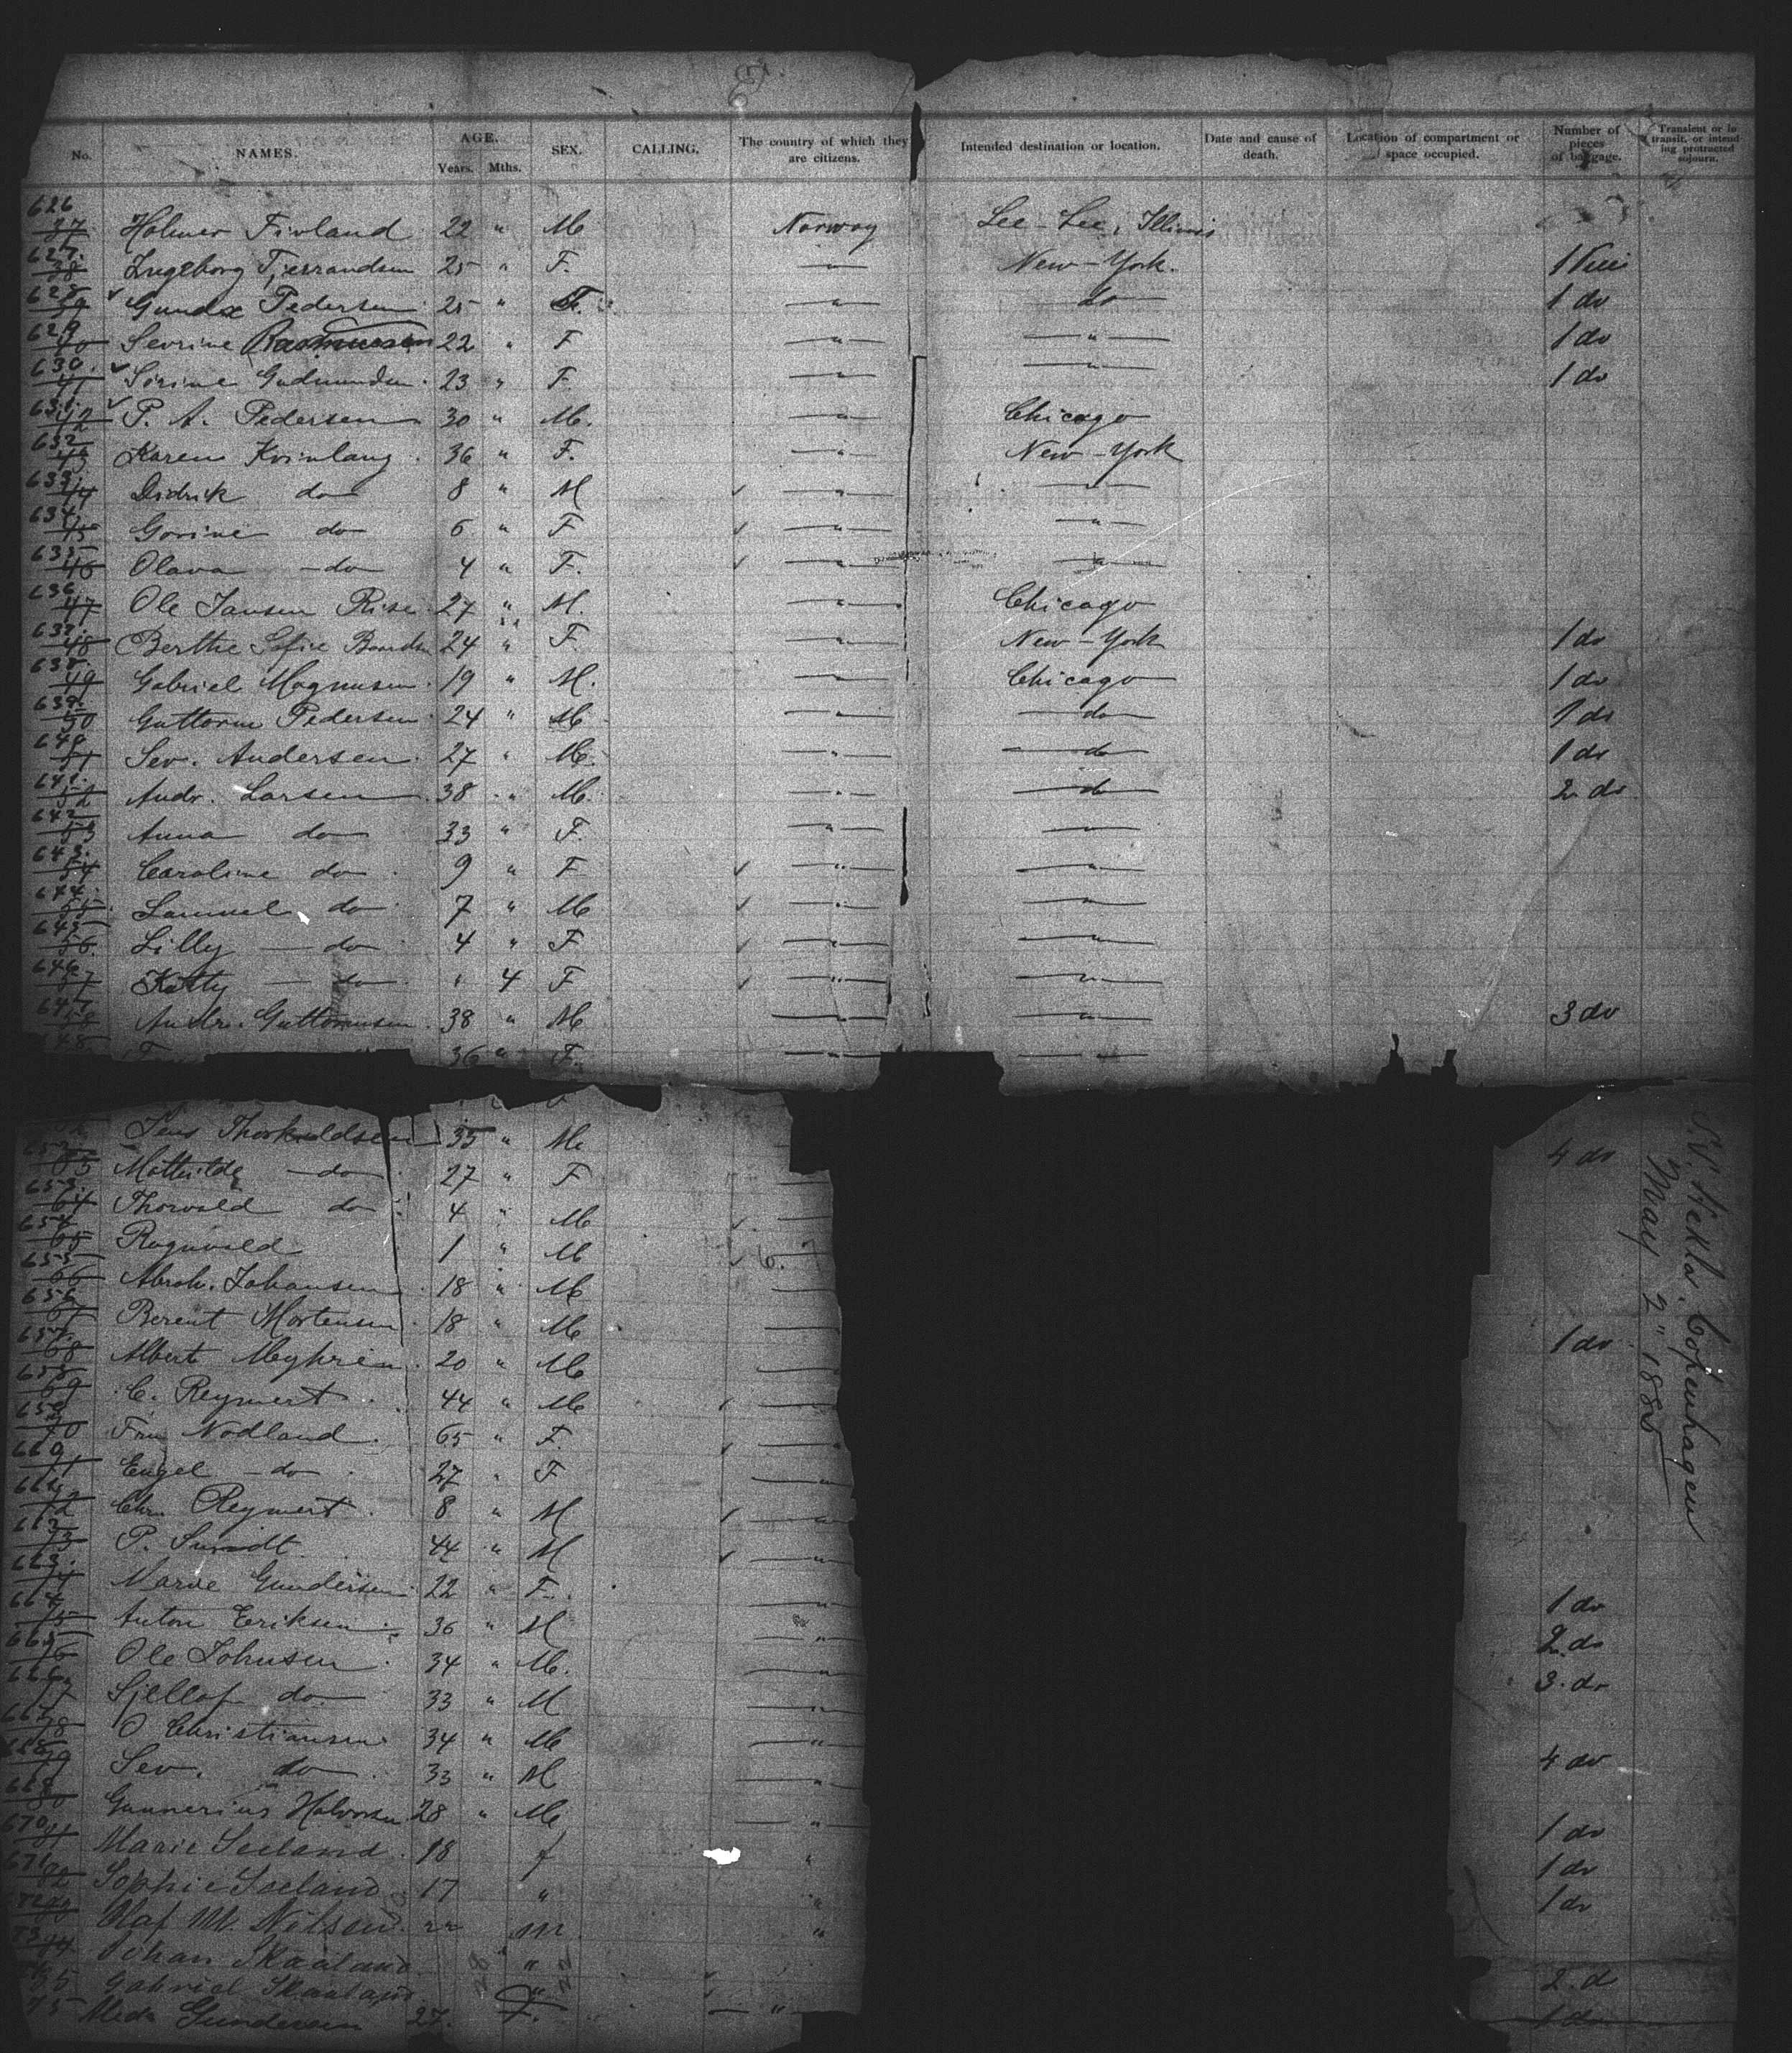 No. NAMES. AGE. Years. Mths. SEX. CALLING. The country of which they are citizens. Intended destination or location. Date and cause of death. Location of compartment or space occupied. Number of pieces of baggage. Transient or in transit, or intending protracted sojourn.
626 37 Holmer Fivland 22 " M Norway Lee - Lee, Illinois
627. 38 Ingeborg Tjerrandsen 25 " F. — " — New-York. 1
628 39 Gunda Pedersen 25 " F. — " — do 1 do
629 40 Sevrine Rasmussen 22 " F — " — — " — 1 do
630. 41 Sirine Gudmundsen 23 " F. — " — — " — 1 do
631. 42 P. A. Pedersen 30 " M. — " — Chicago
632 43 Karen Kvinlaug 36 " F. — " — New-York
633. 44 Didrik do 8 " M — " — — " —
634. 45 Gorine do 6 " F — " — — " —
635 46 Olava do 4 " F. — " — — " —
636. 47 Ole Jansen Rise 27 " M. — " — Chicago
637. 48 Berthe Sofie 24 " F. — " — New-York 1 do
638. 49 Gabriel Magnusen 19 " M. — " — Chicago 1 do
639. 50 Guttorm Pedersen 24 " M — " — do 1 do
640 51 Sev. Andersen 27 " M. — " — do 1 do
641. 52 Andr. Larsen 38 " M. — " — do 2 do
642 53 Anna do 33 " F. — " — — " —
643. 54 Caroline do 9 " F — " — — " —
644. 55 Samuel do 7 " M — " — — " —
645 56. Lilly do 4 " F — " — — " —
646 57 Katty do " 4 F — " — — " —
647 58 Andr. Guttormsen 38 " M — " — — " — 3 do
648 36 " F. — " — — " —
Jens Thorkeldsen 35 " M 4 do
652. 63 Mathilde do 27 " F
653. 64 Thorvald do 4 " M
654 65 Ragnvald 1 " M
655 66 Abrah. Johansen 18 " M
656 67 Berent Mortensen 18 " M
657. 68 Albert Myhren 20 " M 1 do
658 69 C. Reymert 44 " M — " —
659 70 Fru Nodland 65 " F. — " —
660 71 Engel do 27 " F — " —
661 72 Chr. Reymert 8 " M — " —
662 73 P. Smidt 44 " M — " —
663. 74 Marie Gundersen 22 " F. — " — 1 do
664 75 Anton Eriksen 36 " M — " — 2 do
665 76 Ole Johnsen 34 " M. — " — 3. do
666 77 do 33 " M — " —
667 78 O Christiansen 34 " M — " — 4 do
668 79 Sev. do 33 " M — " —
669 80 Gunnerius Halvorsen 28 " M — " — 1 do
670 81 Marie Seeland 18 f " 1 do
671 82 Sophie Seeland 17 " " 1 do
672 83 Olaf M. Nilsen 22 M "
73 84 Johan Skaaland 28 " 22
Gabriel Skaaland " 2. d
75 Meda Gundersen 27. F. — " — 1 do
W. Hekla. Copenhagen
May 2" 1885